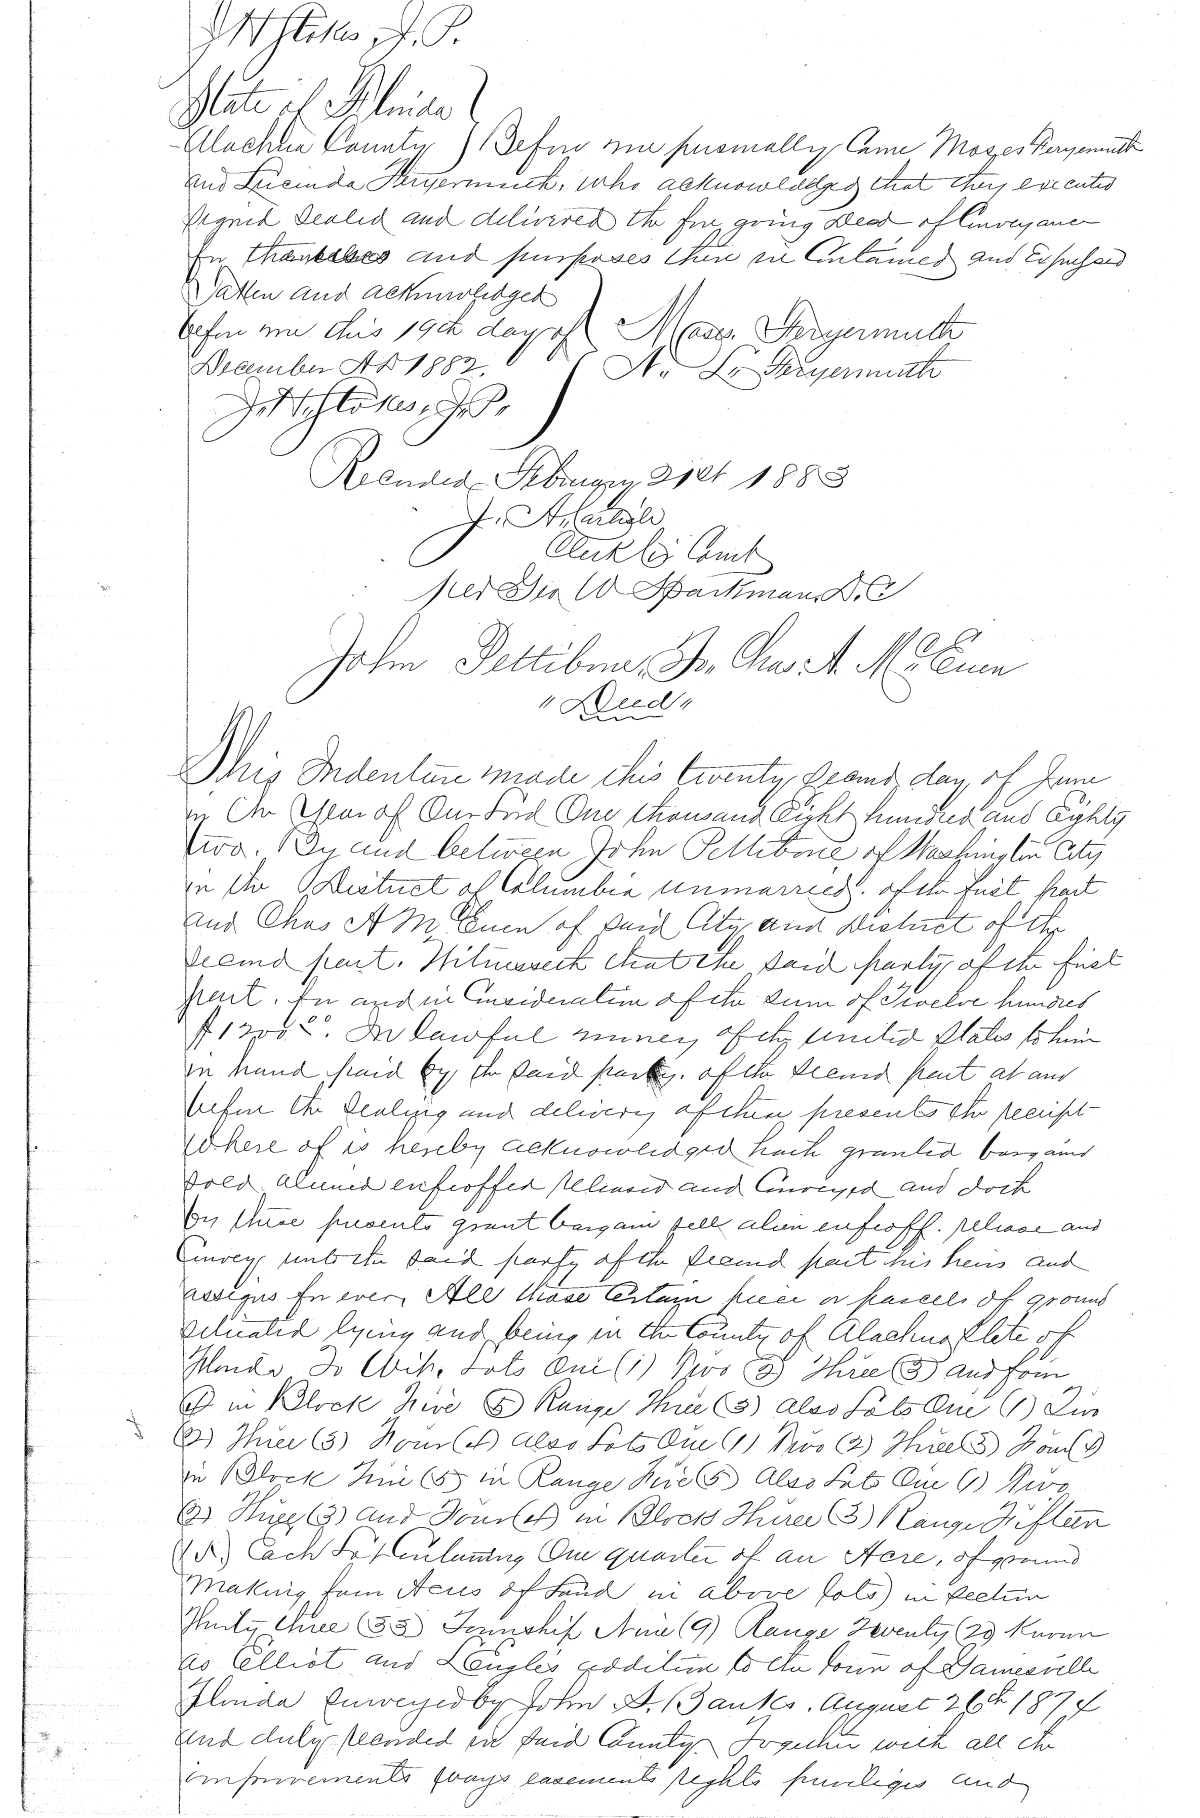 J W Stokes, J. P.
State of Florida
Alachua County } Before me personally Came Moses Feryermuth
and Lucinda Feryermuth, who acknowledged that they executed
signed sealed and delivered the fore going Deed of Conveyance
For the uses and purposes there in Contained and Expressed
Taken and acknowledged
before me this 19th day of } Moses. Feryermuth
December AD 1882. } N. L. Feryermuth
J. W. Stokes, J. P.
Recorded February 21st 1883
J. A. Carlisle
Clerk Cir Court
per Geo W Sparkman, D. C
John Pettibone, To, Chas. A. McEuen
"Deed"
This Indenture made this twenty second day of June
in the Year of Our Lord One thousand Eight hundred and Eighty
two. By and between John Pettibone of Washington City
in the District of Columbia unmarried. of the first part
and Chas A McEuen of said City and District of the
second part. Witnesseth that the said party of the first
part. for and in Consideration of the sum of Twelve hundred
$1200.00. In lawful money of the United States to him
in hand paid by the said party. of the second part at and
before the sealing and delivery of these presents the receipt
where of is hereby acknowledged hath granted bargaind
sold aliened enfeoffed released and Conveyed and doth
by these presents grant bargain sell alien enfeoff. release and
Convey unto the said party of the second part his heirs and
assigns for ever, All those Certain piece or parcels of ground
situated lying and being in the County of Alachua State of
Florida, To Wit. Lots One (1) Two (2) Three (3) and four
(4) in Block Five (5) Range Three (3) also Lots One (1) Two
(2) Three (3) Four (4) also Lots One (1) Two (2) Three (3) Four (4)
in Block Five (5) in Range Five (5) Also Lots One (1) Two
(2) Three (3) and Four (4) in Block Three (3) Range Fifteen
(15.) Each Lot Containing One quarter of an Acre, of ground
Making four Acres of Land in above lots) in Section
Thirty three (33) Township Nine (9) Range Twenty (20) Known
as Elliot and L'Engle's addition to the town of Gainesville
Florida Surveyed by John A. Banks. August 26th 1874
and duly recorded in said County. Together with all the
improvements ways easements rights privileges and